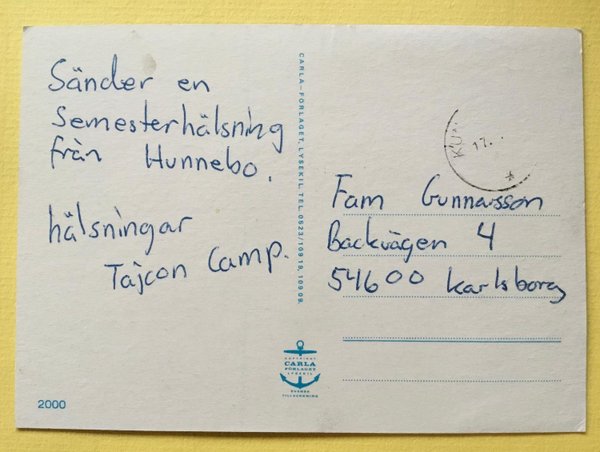 Sänder en
Semesterhälsning
från Hunnebo.
hälsningar
Tajcon Camp.
2000
CARLA-FÖRLAGET, LYSEKIL. TEL. 0523/109 19, 109 09.
COPYRIGHT
CARLA
FÖRLAGET
LYSEKIL
SVENSK
TILLVERKNING
KU
17.
Fam Gunnarsson
Backvägen 4
54600 Karlsborg